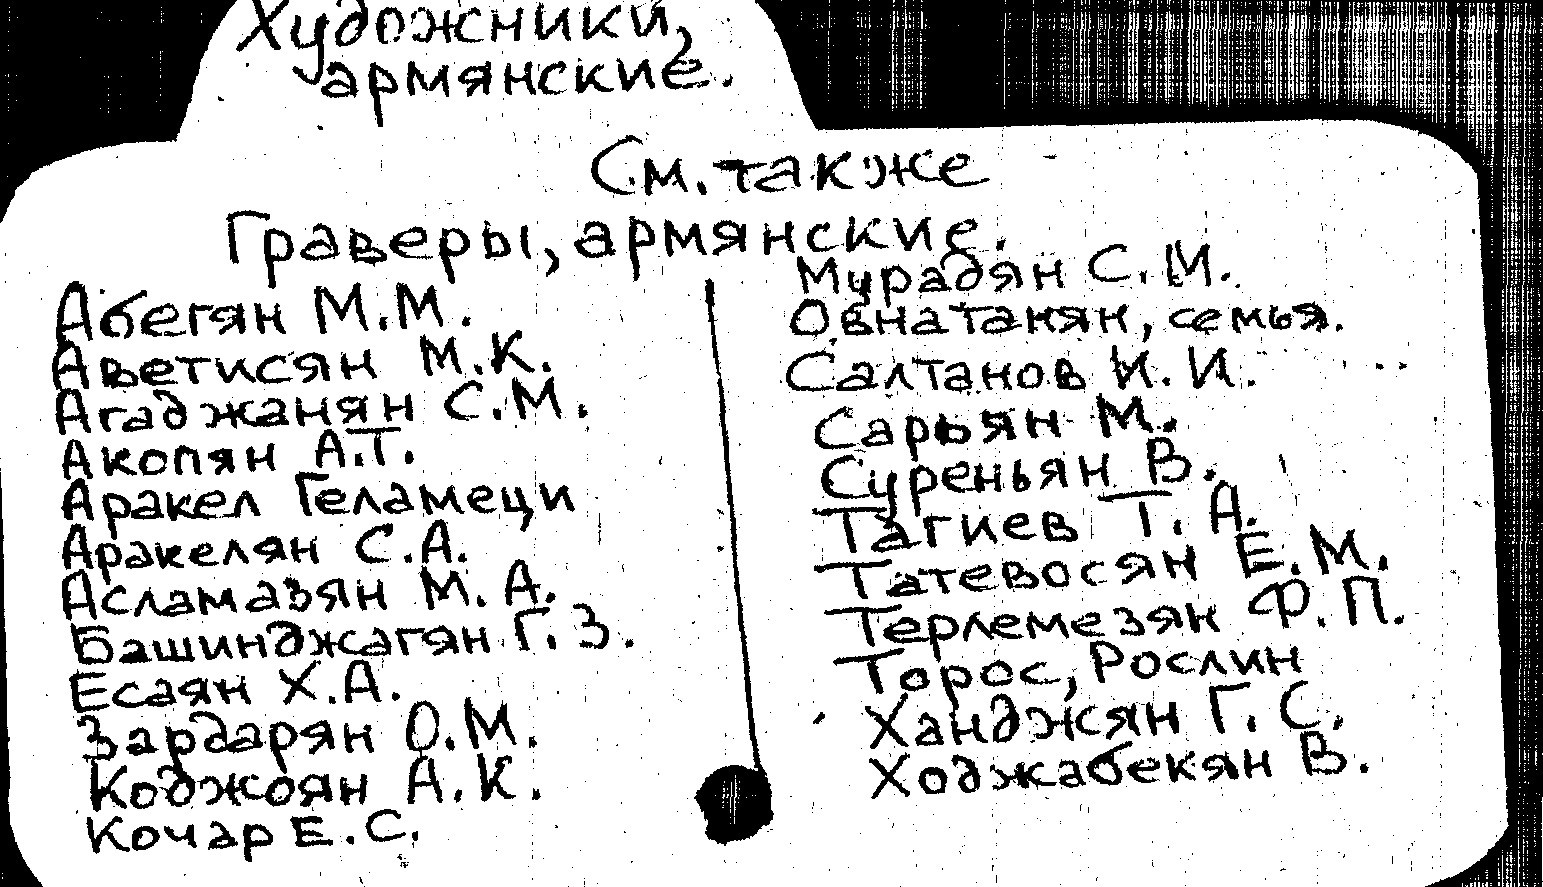 Художники,
армянские.
См. также
Граверы, армянские.
Абегян М.М.
Аветисян М.К.
Агаджанян С.М.
Акопян А.Т.
Аракел Геламеци
Аракелян С.А.
Асламазян М.А.
Башинджагян Г.З.
Есаян Х.А.
Зардарян О.М.
Коджоян А.К.
Кочар Е.С.
Мурадян С.М.
Овнатанян, семья.
Салтанов И.И.
Сарьян М.
Суреньян В.
Тагиев Т.А.
Татевосян Е.М.
Терлемезян Ф.П.
Торос, Рослин
Ханджян Г.С.
Ходжабекян В.